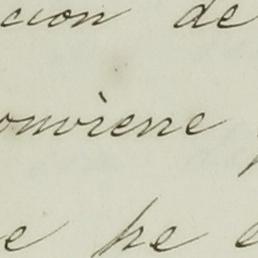 cion de
onviene
e he e